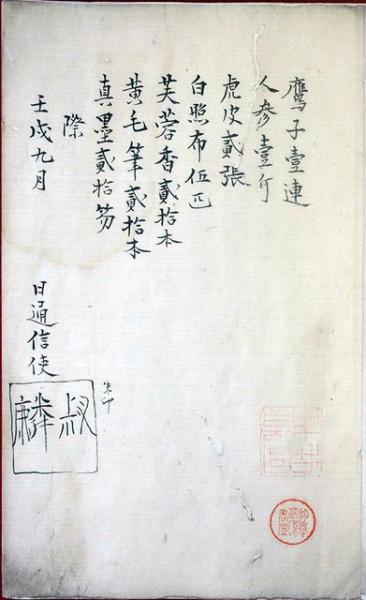 鷹子壹連
人參壹斤
虎皮貳張
白照布伍匹
芙蓉香貳拾本
黄毛筆貳拾本
真墨貳拾笏
際
壬戌九月 日通信使
朱印
叔麟